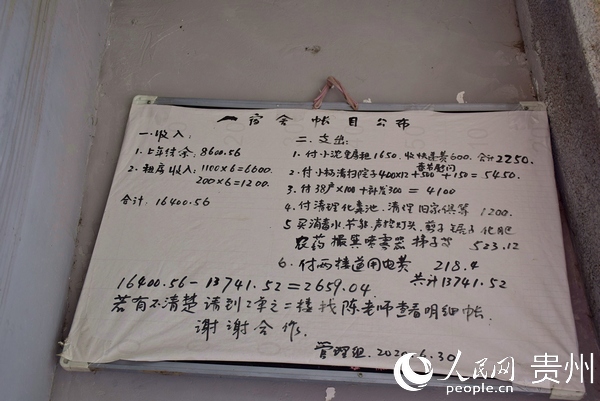 一宿舍帐目公布
一.收入:
1.上年结余:8600.56
2.租房收入:1100×6=6600
200×6=1200.
合计:16400.56
二.支出:
1.付小沈免房租1650.收快递费600.合计2250.
2.付小杨清扫院子400×12+500+150=5450
春节慰问
3.付38户×100+补发300=4100
4.付清理化粪池.清理旧家俱等1200.
5.买消毒水.节能.声控灯头.剪子 化肥
农药撮箕喷雾器梯子等523.12
6.付两楼道用电费218.4
共计13741.52
16400.56-13741.52=2659.04
若有不清楚请到2单元二楼找陈老师查看明细帐.
谢谢合作.
管理组.2020.6.30
人民网 贵州
people.cn